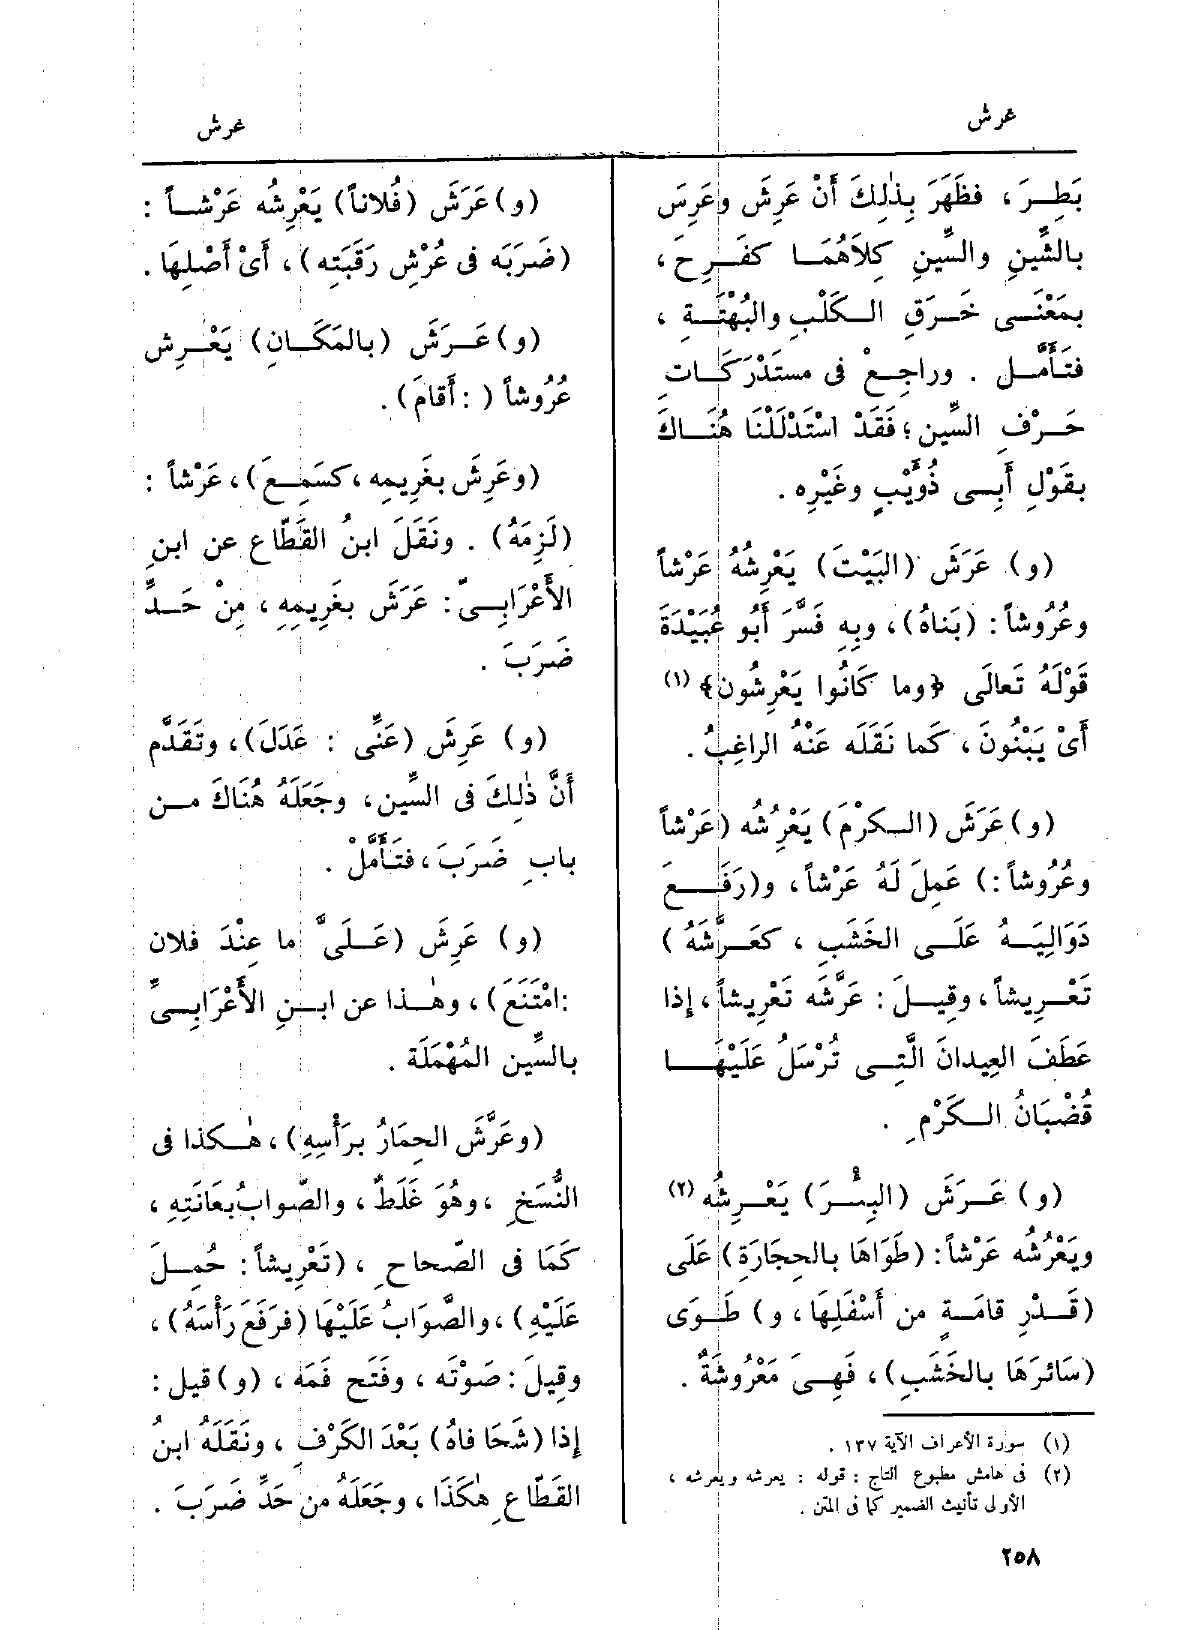 عرش
عرش
بَطِرَ ، فظَهَرَ بِذٰلِكَ أَنْ عَرِشَ وعَرِسَ
بالشِّينِ والسِّينِ كِلاَهُمَا كفَرِحَ ،
بمَعْنَى خَرَقِ الكَلْبِ والبُهْتَةِ ،
فتَأَمَّل . وراجِعْ فى مستَدْرَكَاتِ
حَرْفِ السِّين ؛ فَقَدْ اسْتَدْلَلْنَا هُنَاكَ
بقَوْلِ أَبِى ذُوَيْبٍ وغَيْرِه .
(و) عَرَشَ (البَيْتَ) يَعْرِشُهُ عَرْشاً
وعُرُوشاً : (بَناهُ) ، وبِهِ فَسَّرَ أَبُو عُبَيْدَةَ
قَوْلَهُ تَعالَى ﴿وما كَانُوا يَعْرِشُون﴾ (١)
أَىْ يَبْنُونَ ، كَما نَقَلَه عَنْهُ الراغِبُ .
(و) عَرَشَ (الكرْمَ) يَعْرُشُه (عَرْشاً
وعُرُوشاً :) عَمِلَ لَهُ عَرْشاً ، و(رَفَعَ
دَوَالِيَهُ عَلَى الخَشَبِ ، كعَرَّشَهُ )
تَعْرِيشاً ، وقِيلَ : عَرَّشَه تَعْرِيشاً ، إِذا
عَطَفَ العِيدانَ الَّتِى تُرْسَلُ عَلَيْهَا
قُضْبَانُ الكَرْمِ .
(و) عَرَشَ (البِئْرَ) يَعْرِشُه (٢)
ويَعْرُشُه عَرْشاً : (طَوَاهَا بالحِجَارَةِ) عَلَى
(قَدْرِ قامَةٍ من أَسْفَلِهَا ، و) طَوَى
(سَائرَهَا بالخَشَبِ) ، فَهِىَ مَعْرُوشَةٌ .
(١) سورة الأعراف الآية ١٣٧ .
(٢) فى هامش مطبوع التاج : قوله : يعرشه ويعرشه ،
الأولى تأنيث الضمير كما فى المتن .
(و) عَرَشَ (فُلاناً) يَعْرِشُه عَرْشاً :
(ضَرَبَه فى عُرْشِ رَقَبَتِه) ، أَىْ أَصْلِهَا .
(و) عَرَشَ (بالمَكَانِ) يَعْرِش
عُرُوشاً ( : أَقامَ) .
(وعَرِشَ بغَرِيمِه ، كسَمِعَ) ، عَرْشاً :
(لَزِمَهُ) . ونَقَلَ ابنُ القَطَّاعِ عن ابنِ
الأَعْرَابِىّ : عَرَشَ بغَرِيمِهِ ، مِنْ حَدِّ
ضَرَبَ .
(و) عَرِشَ (عَنِّى : عَدَلَ) ، وتَقَدَّم
أَنَّ ذٰلِكَ فى السِّين ، وجَعَلَهُ هُنَاكَ من
بابِ ضَرَبَ ، فتَأَمَّلْ .
(و) عَرِشَ (عَلَىَّ ما عِنْدَ فلان
:امْتَنَعَ) ، وهٰذا عن ابنِ الأَعْرَابِىِّ
بالسِّين المُهْمَلَة .
(وعَرَّشَ الحِمَارُ برَأْسِهِ) ، هٰكذا فى
النُّسَخِ ، وهُوَ غَلَطٌ ، والصَّوابُ بعَانَتِهِ ،
كَمَا فى الصّحاحِ ، (تَعْرِيشاً : حُمِلَ
عَلَيْهِ) ، والصَّوَابُ عَلَيْهَا (فرَفَعَ رَأْسَهُ) ،
وقِيلَ : صَوْتَه ، وفَتَح فمَه ، (و) قيل :
إِذا (شَحَا فاهُ) بَعْدَ الكَرْفِ ، ونَقَلَهُ ابنُ
القَطَّاعِ هٰكَذَا ، وجَعَلَهُ من حَدِّ ضَرَبَ .
٢٥٨